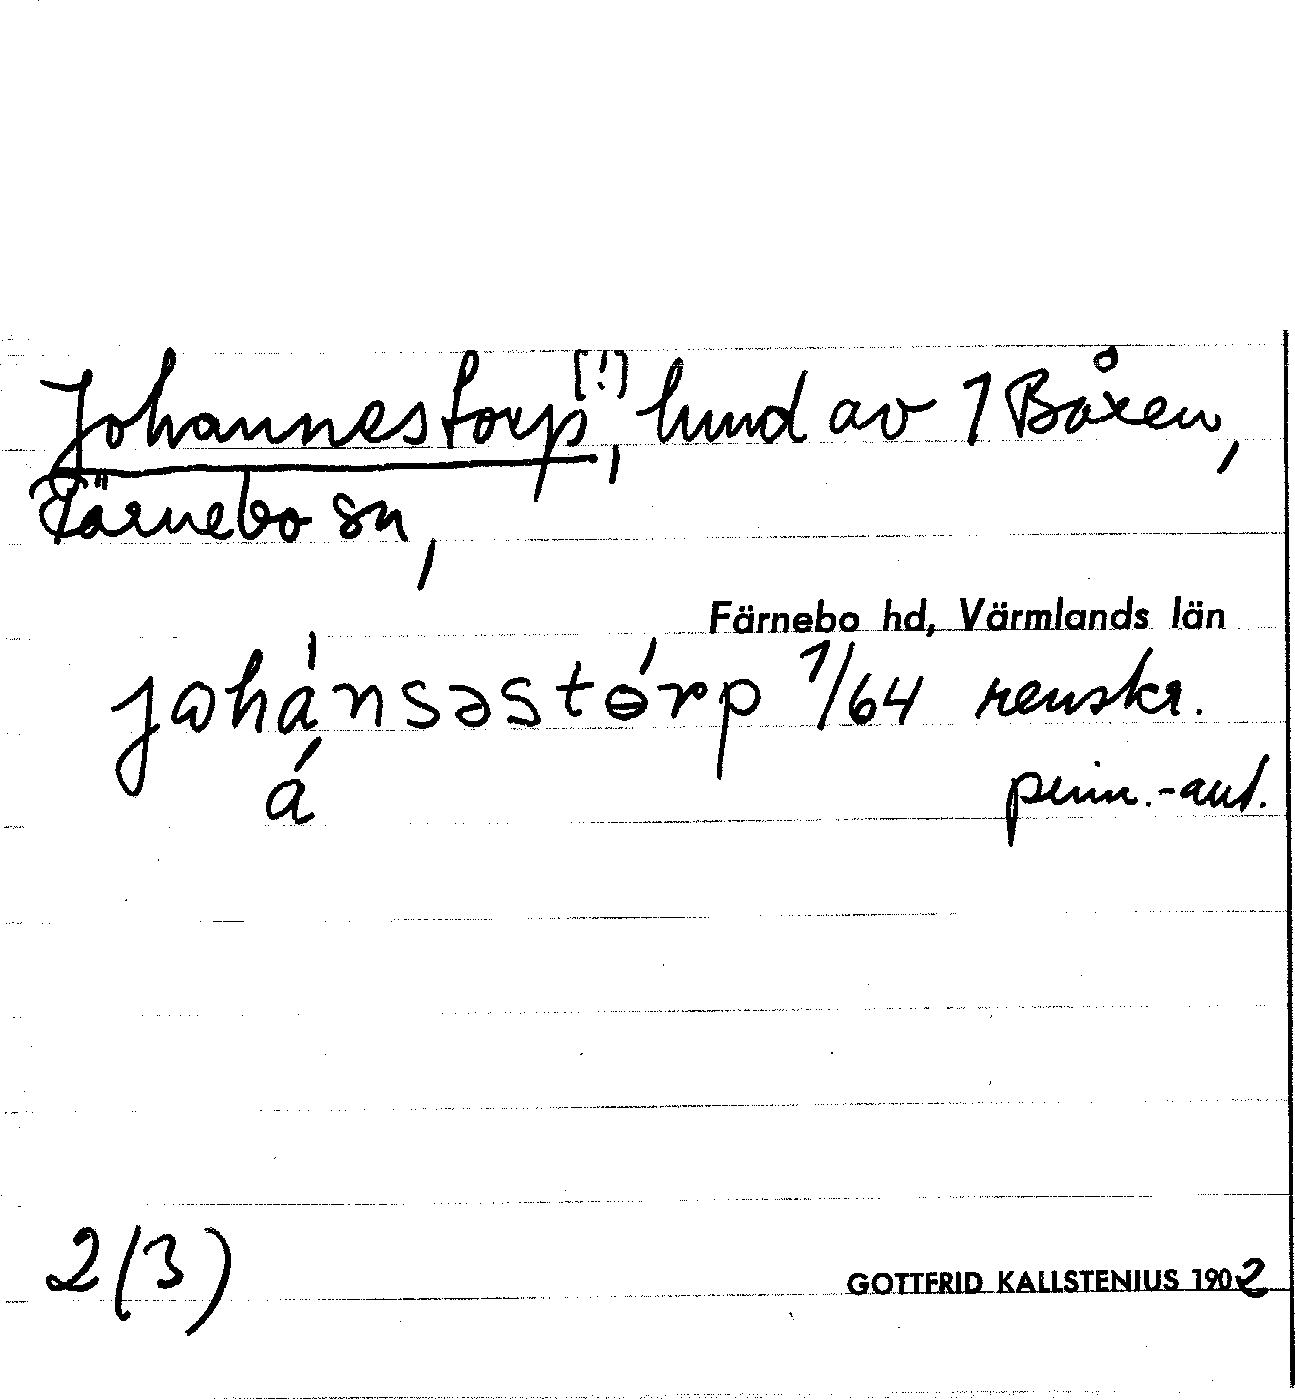 Johannestorp [!], lund av 1 Båxen,
Färnebo sn,
Färnebo hd, Värmlands län
johánsəstɵ́rp 1/64 renskr.
á
penn.-ant.
2(3)
GOTTFRID KALLSTENIUS 1902